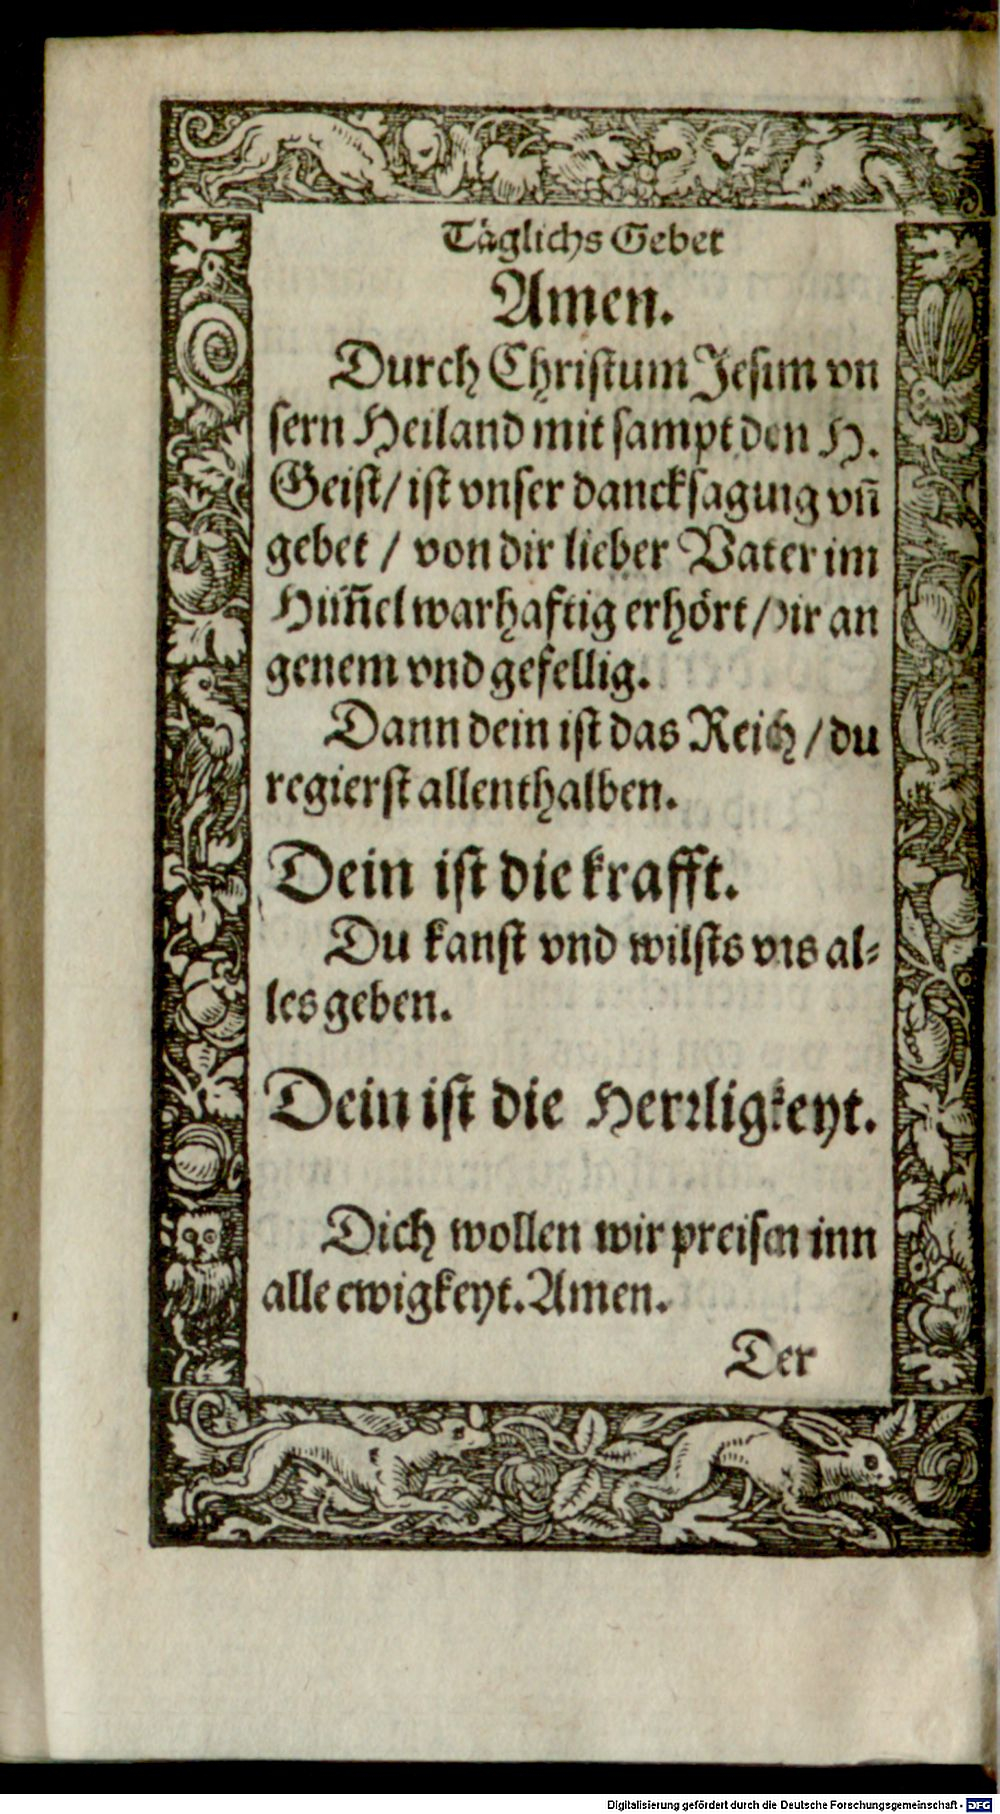 Täglichs Gebet
Amen.
Durch Christum Jesum vn
sern Heiland mit sampt den H.
Geist/ ist vnser dancksagung vn̄
gebet / von dir lieber Vater im
Him̄el warhafftig erhört / dir an
genem vnd gefellig.
Dann dein ist das Reich / du
regierst allenthalben.
Dein ist die krafft.
Du kanst vnd wilsts vns al⸗
les geben.
Dein ist die Herrligkeyt.
Dich wollen wir preisen inn
alle ewigkeyt. Amen.
Der
Digitalisierung gefördert durch die Deutsche Forschungsgemeinschaft - DFG